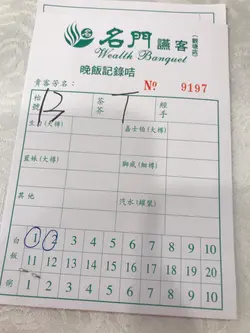 名門讌客
(觀塘店)
Wealth Banquet
晚飯記錄咭
貴客芳名: № 9197
枱號 B 茶芥 T 經手
生力(大樽) 嘉士伯(大樽)
藍妹(大樽) 獅威(細樽)
其他 汽水(罐裝)
白飯 1 2 3 4 5 6 7 8 9 10
11 12 13 14 15 16 17 18 19 20
粥 1 2 3 4 5 6 7 8 9 10